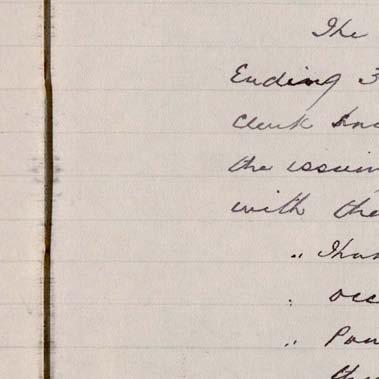 The
Ending 3
Clerk
the issuin
with the
" Thos
occ
" Pou
the